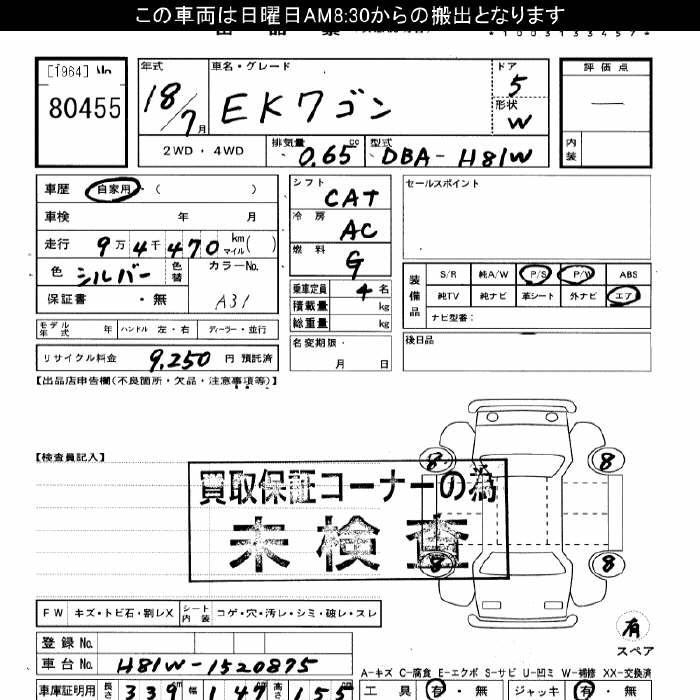 この車両は日曜日AM8:30からの搬出となります
*1003133457*
[1964] No 年式 車名・グレード ドア 評価点
80455 18/7月 EKワゴン 5 ―
形状 W
2WD・4WD 排気量 0.65 cc 型式 DBA-H81W 内装
車歴 自家用 ( ) シフト CAT セールスポイント
車検 年 月 冷房 AC
走行 9万4千470 km マイル( ) 燃料 G
色 シルバー 色替 カラーNo. A31 乗車定員 4名 装備品 S/R 純A/W P/S P/W ABS
保証書 ・無 積載量 kg 純TV 純ナビ 革シート 外ナビ エア
総重量 kg ナビ型番:
モデル年式 年 ハンドル 左・右 ディーラー・並行 名変期限・ 月 日 後日品
リサイクル料金 9,250 円 預託済
【出品店申告欄(不良箇所・欠品・注意事項等)】
【検査員記入】 8 8
買取保証コーナーの為
未検査
8 8
FW キズ・トビ石・割レX シート内装 コゲ・穴・汚レ・シミ・破レ・スレ 有
スペア
登録No.
車台No. H81W-1520875
A-キズ C-腐食 E-エクボ S-サビ U-凹ミ W-補修 XX-交換済
車庫証明用 長さ 339 幅 147 高さ 155 工具 有・無 ジャッキ 有・無